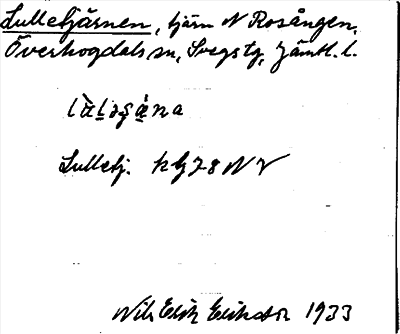 Lulletjärnen, tjärn N Rosången,
Överhogdals sn, Svegs tg, Jämtl. l.
Lulletj. k bl 78 NV
Nils Erik Eriksson 1933